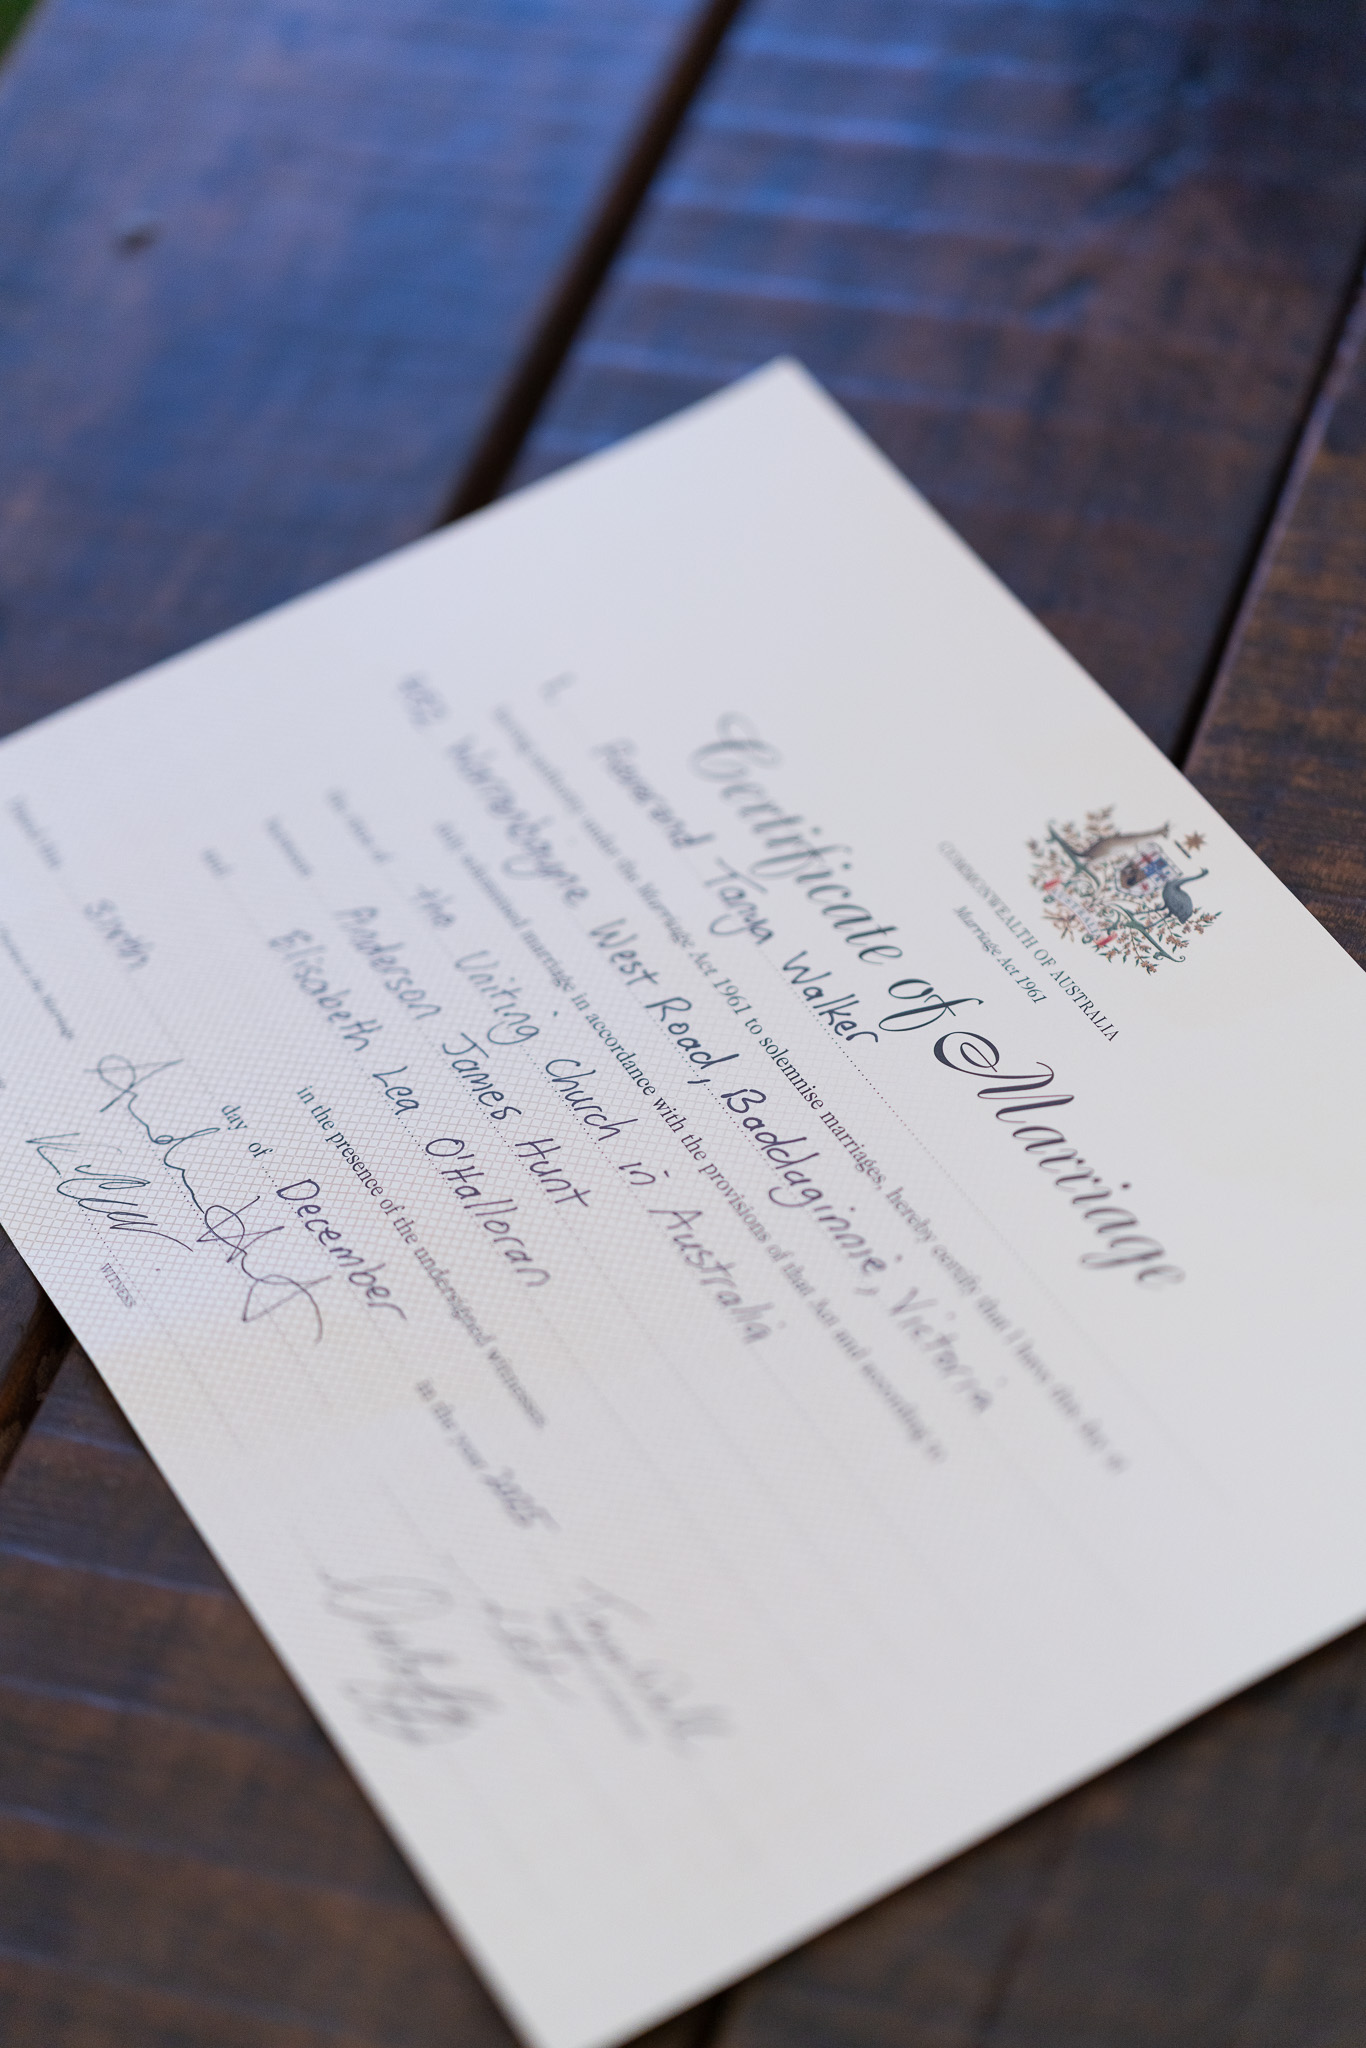 COMMONWEALTH OF AUSTRALIA
Marriage Act 1961
Certificate of Marriage
I, Reverend Tanya Walker
having authority under the Marriage Act 1961 to solemnise marriages, hereby certify that I have this day at
Warrenbayne West Road, Baddaginnie, Victoria
duly solemnised marriage in accordance with the provisions of that Act and according to
the rites of the Uniting Church in Australia
between Anderson James Hunt
and Elisabeth Lea O'Halloran
in the presence of the undersigned witnesses.
Dated this sixth day of December in the year 2025
Parties to the Marriage
WITNESS